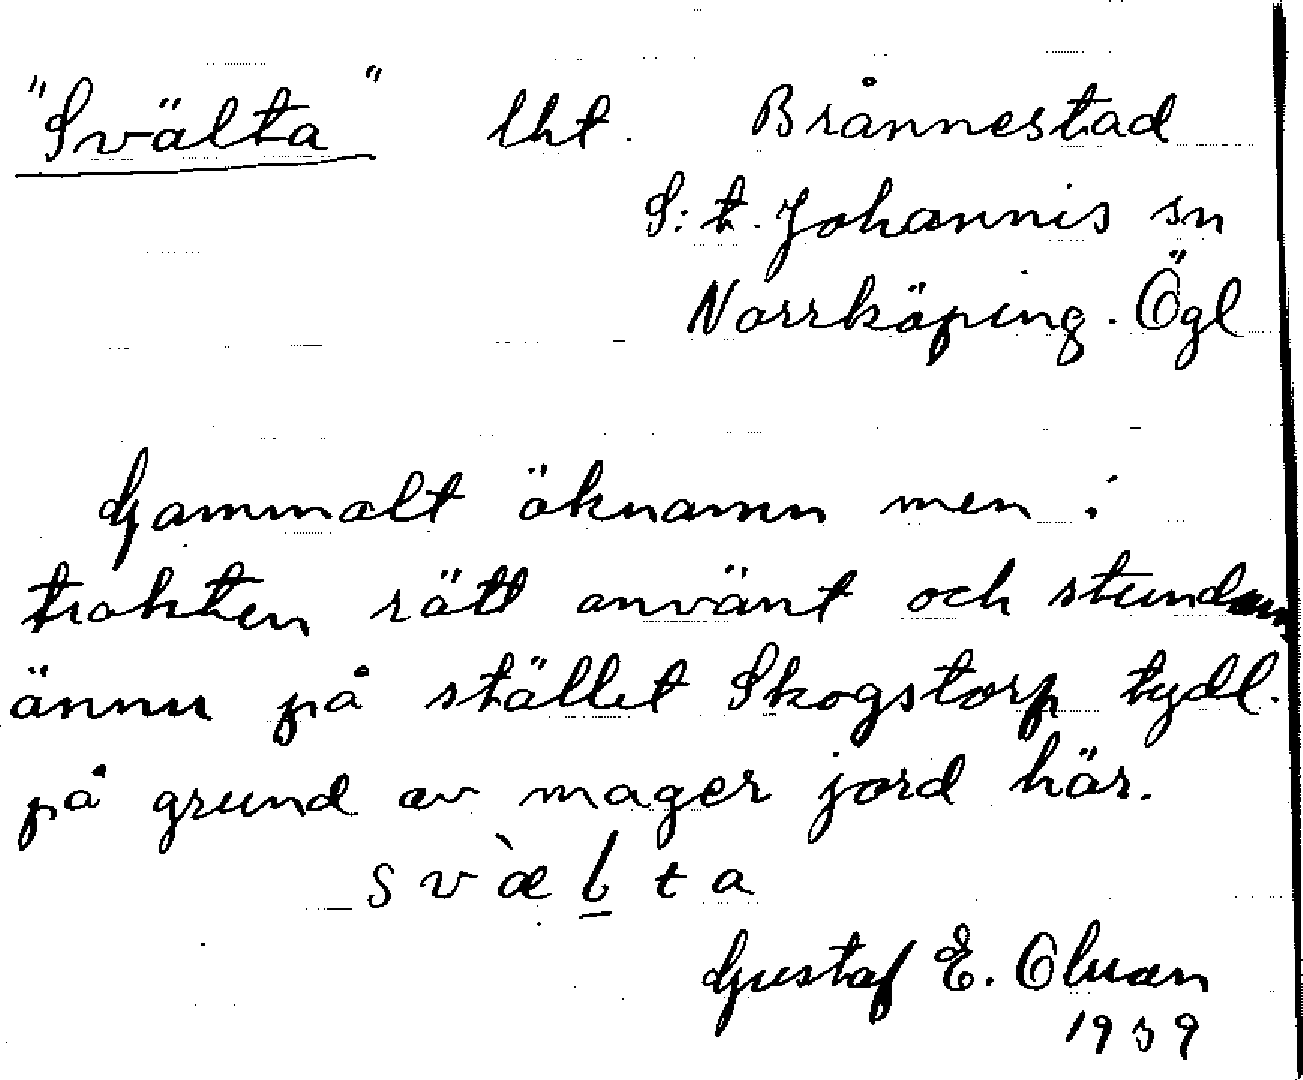 "Svälta" lht. Brånnestad
S:t. Johannis sn
Norrköping. Ögl
Gammalt öknamn men i
trakten rätt använt och stundom
ännu på stället Skogstorp tydl.
på grund av mager jord här.
s v æ̀ l̲ t a
Gustaf E.
1939